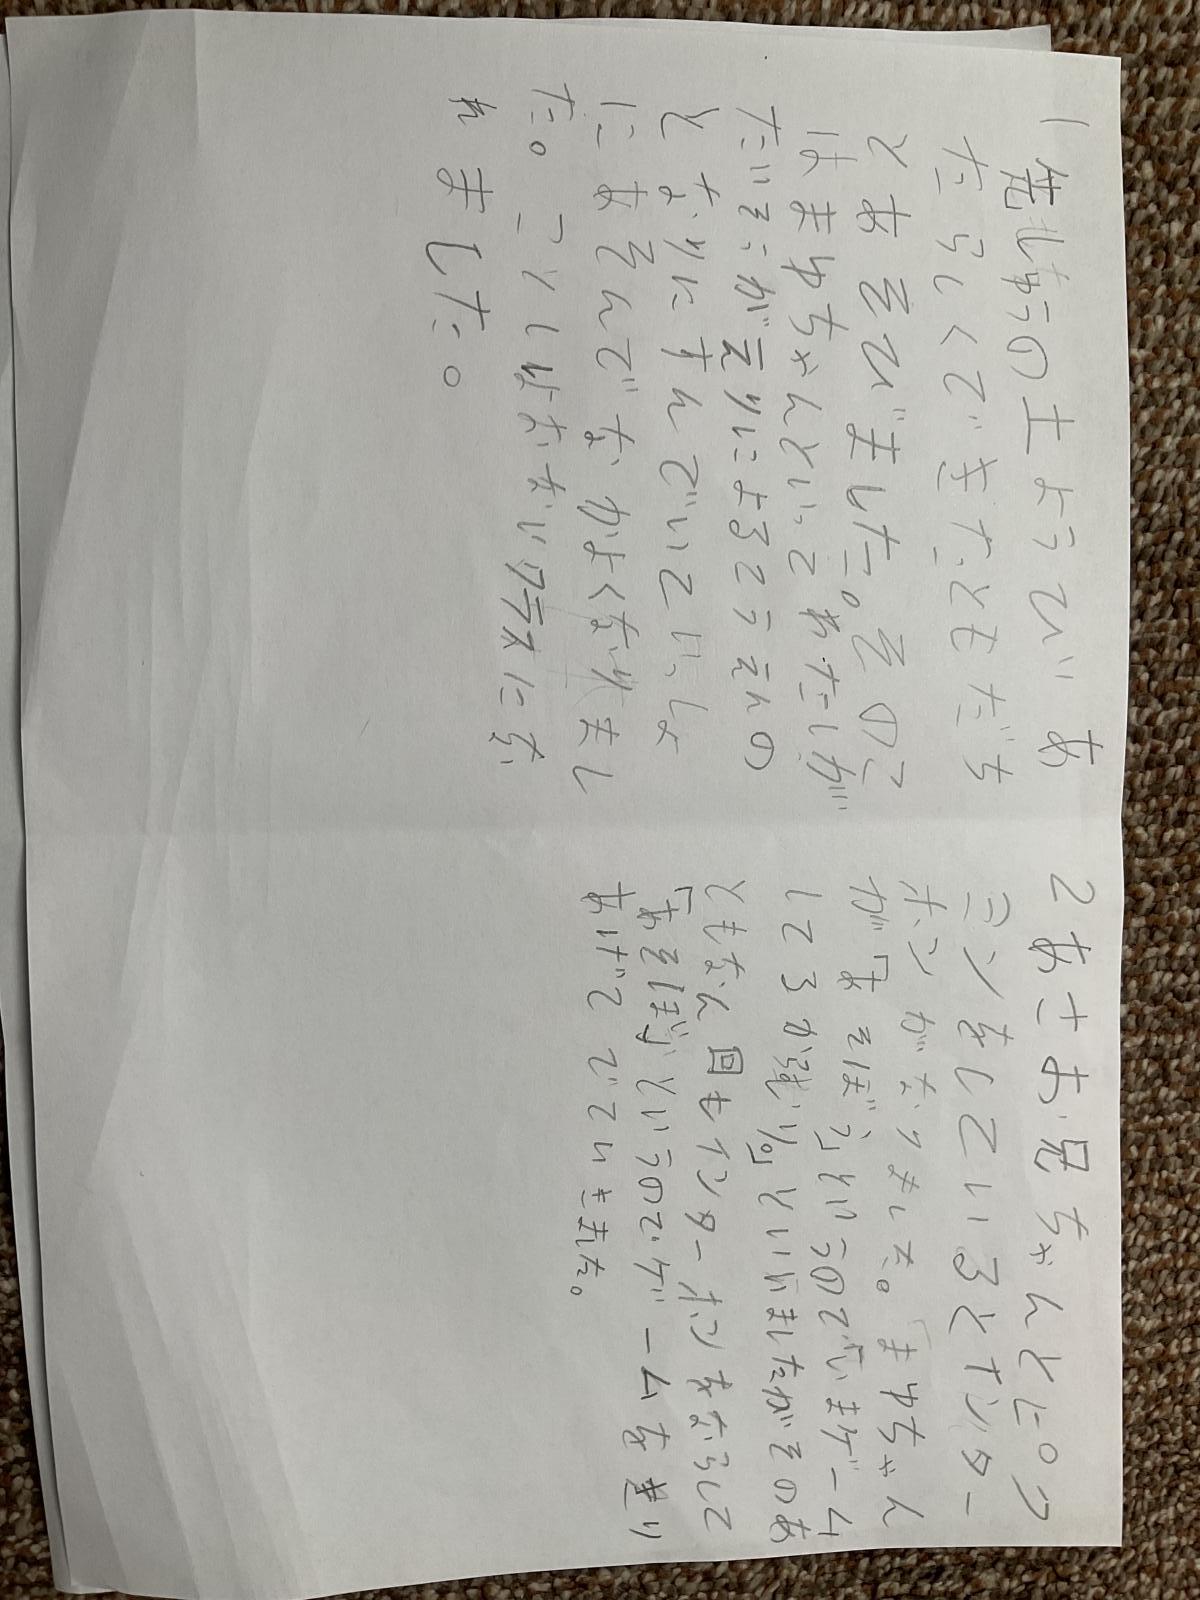 1 先しゅうの土ようび あ
たらしくできたともだち
とあそびました。そのこ
はまゆちゃんといってわたしが
たいそうがえりによるこうえんの
となりにすんでいていっしょ
にあそんでなかよくなりまし
た。ことしはおなじクラスにな
れました。
2 あさお兄ちゃんとピク
ミンをしているとインター
ホンがなりました。「まゆちゃん
が「あそぼう」というのでいまゲーム
してるといいましたがそのあ
ともなん回もインターホンをならして
「あそぼう」というのでゲームをきり
あげてでていきました。